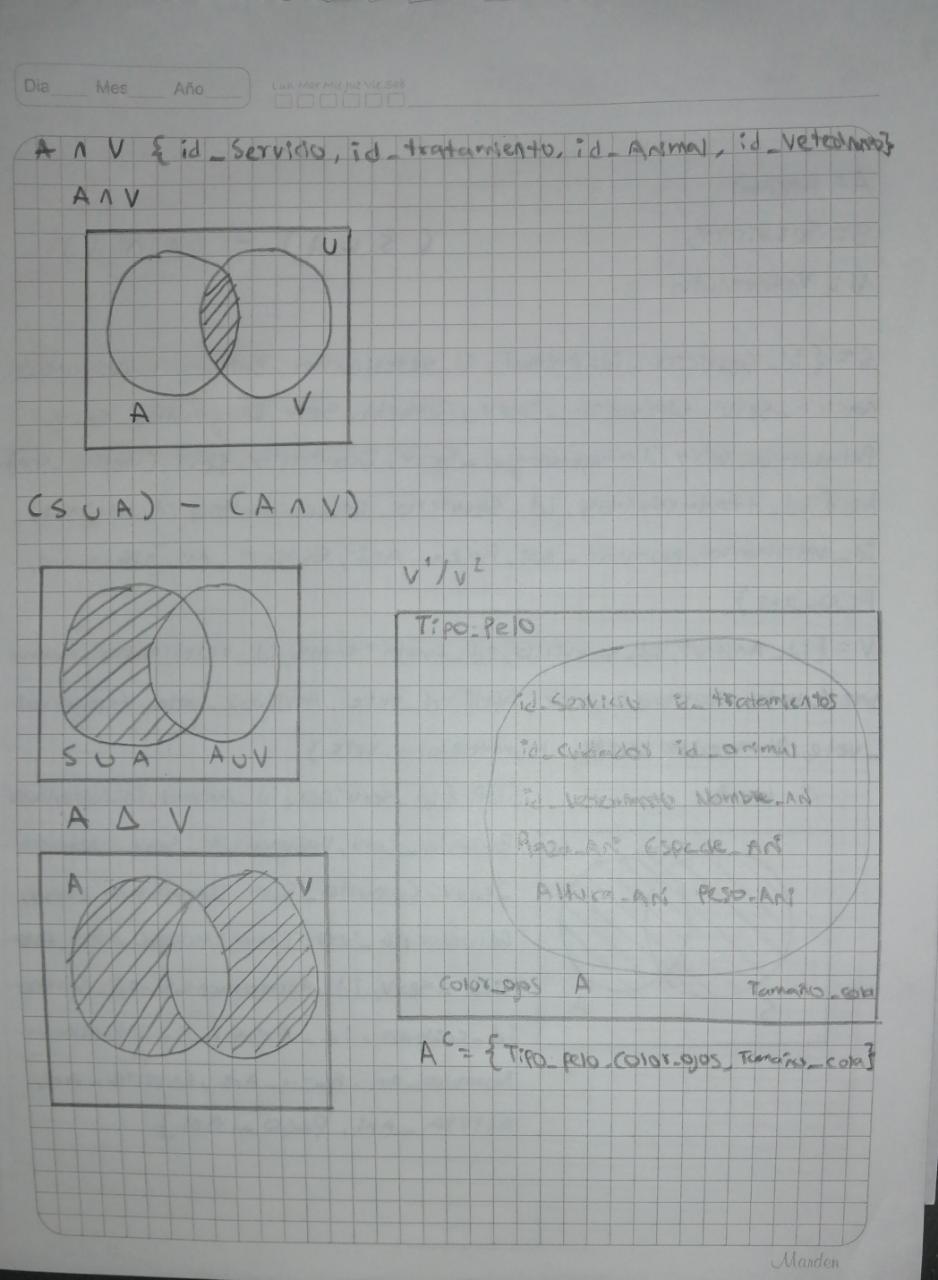 Dia Mes Año Lun Mar Mie Jue Vie Sab
A ∩ V { id_Servicio, id_tratamiento, id_Animal, id_veterinario}
A ∩ V
U
A V
(S ∪ A) - (A ∩ V)
S ∪ A A ∪ V
A Δ V
A V
V¹/V²
Tipo_Pelo
id_Servicio id_tratamientos
id_cuidador id_animal
id_veterinario Nombre_Ani
Raza_Ani Especie_Ani
Altura_Ani Peso_Ani
Color_ojos A Tamaño_cola
Aᶜ = {Tipo_pelo_color_ojos_Tamaño_cola}
Marden